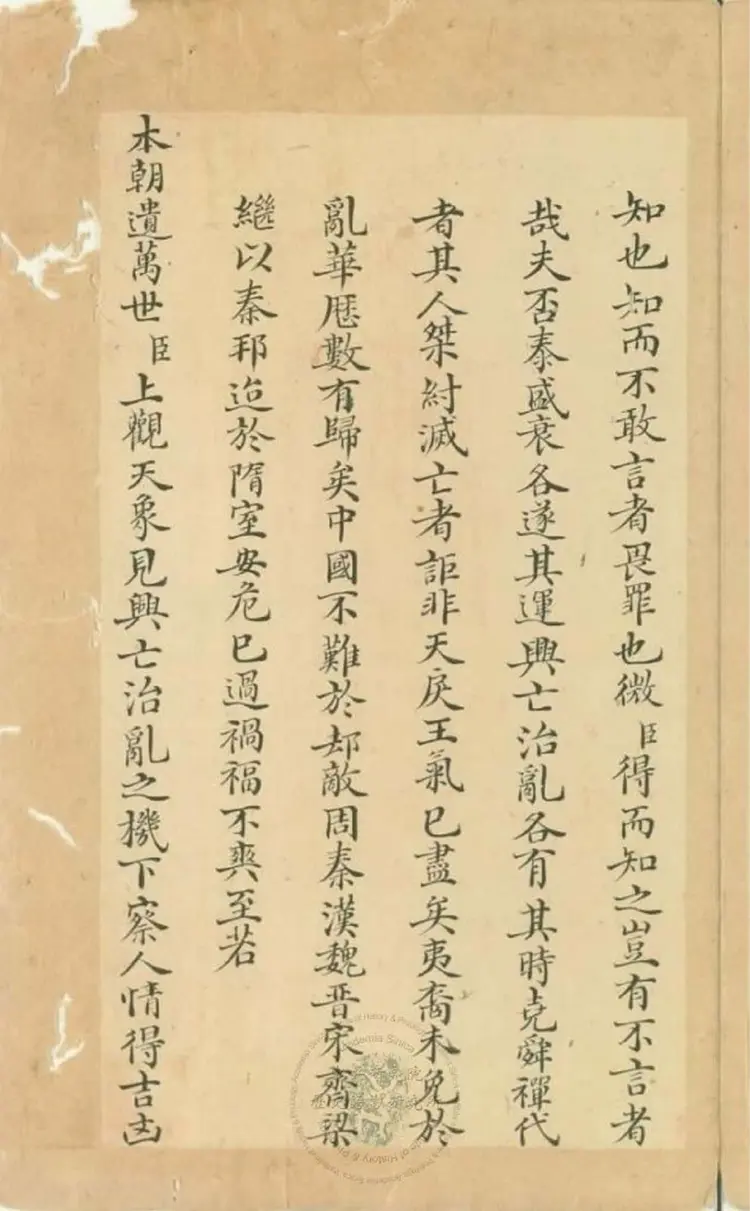 知也知而不敢言者畏罪也微臣得而知之豈有不言者
哉夫否泰盛衰各遂其運興亡治亂各有其時堯舜禪代
者其人桀紂滅亡者詎非天戾王氣已盡矣夷裔未免於
亂華曆數有歸矣中國不難於却敵周秦漢魏晋宋齊梁
繼以秦邦迨於隋室安危已過禍福不爽至若
本朝遺萬世臣上觀天象見興亡治亂之機下察人情得吉凶